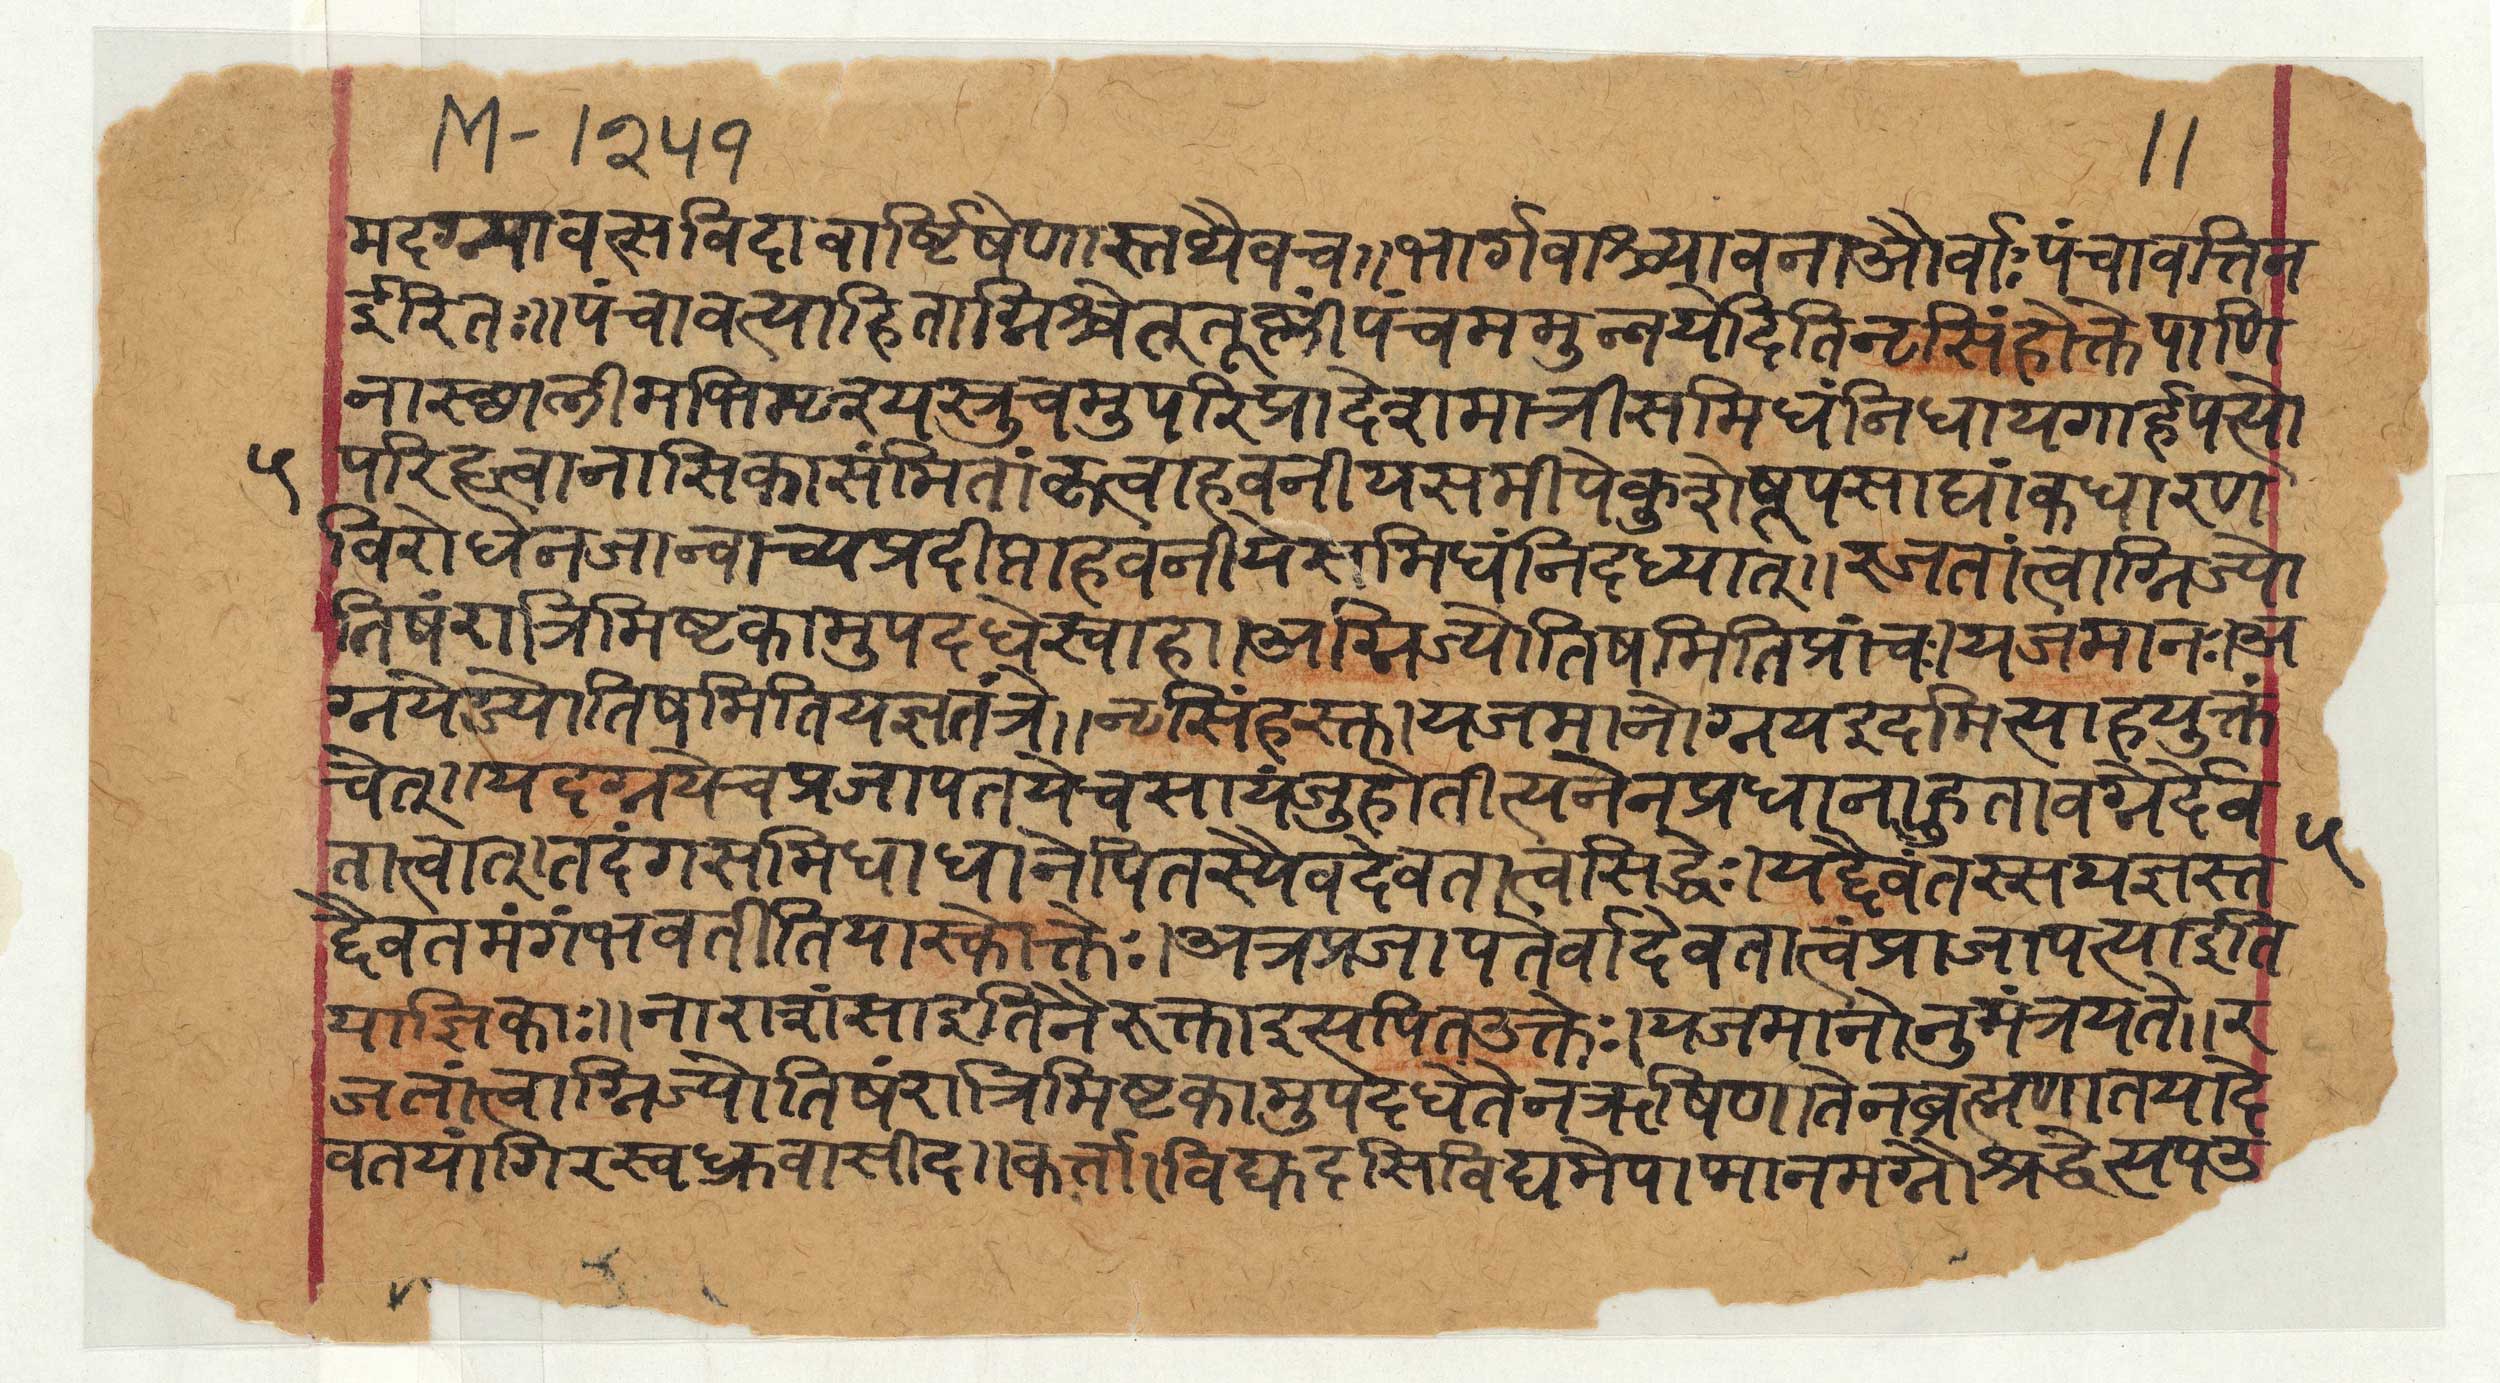 M-१२५१
11
मदग्न्यावत्सविदावार्ष्टिषेणास्तथैवच॥भार्गवाश्च्यावनाऔर्वाःपंचावत्तिन
ईरितः॥पंचावत्त्याहिताग्निश्चेत्तूतूष्णींपंचममुन्नयेदितिनृसिंहोक्तेपाणि
नास्थालीमभिमृश्यस्त्रुचमुपरिप्रादेशमात्रीसमिधंनिधायगार्हपत्यो
५ परिहृत्वानासिकासंमितांकृत्वाहवनीयसमीपेकुशेषूपसाद्यांकधारण
विरोधेनजान्वाच्यप्रदीप्ताहवनीयेसमिधंनिदध्यात्॥रजतांत्वाग्निज्यो
तिषंरात्रिमिष्टकामुपदधेस्वाहा।अग्निज्योतिषमितिप्रांचः।यजमानः।अ
ग्नयेज्योतिषमितियज्ञतंत्रे॥नृसिंहस्तु।यजमानोग्नयइदमित्याहयुक्तं
चेत्॥यदग्नयेचप्रजापतयेचसायंजुहोतीत्यनेनप्रधानाहुतावग्नेर्देव
तात्वात्।तदंगसमिधाधानेपितस्यैवदेवतात्वसिद्धेः।यद्दैवंतस्सयज्ञस्त ५
द्दैवतमंगंभवतीतियास्कोक्तेः।अत्रप्रजापतेर्वादेवतात्वंप्राजापत्याइति
याज्ञिकाः॥नाराशंसाइतिनैरुक्ताइत्यपितउक्तेः।यजमानोनुमंत्रयते॥र
जतांत्वाग्निज्योतिषंरात्रिमिष्टकामुपदधेतेनऋषिणातेनब्रह्मणातयादे
वतयांगिरस्वध्रुवासीद॥कर्ता।विद्युदसिविद्यमेपाप्मानमग्नौश्रद्धेत्यपउ